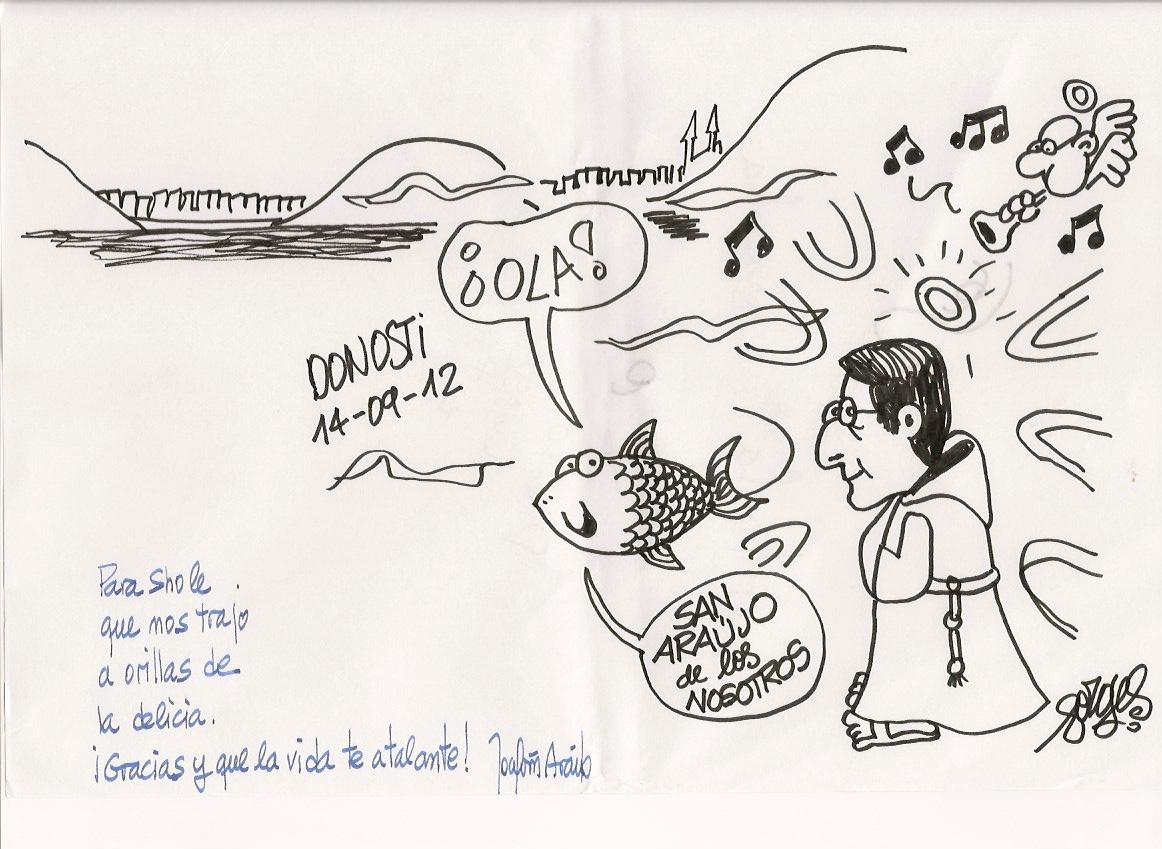 ¡OLA!
DONOSTi
14-09-12
SAN
ARAÚJO
de los
NOSOTROS
Para Shole
que nos trajo
a orillas de
la delicia.
¡Gracias y que la vida te atalante! Joaquín Araújo
Forges